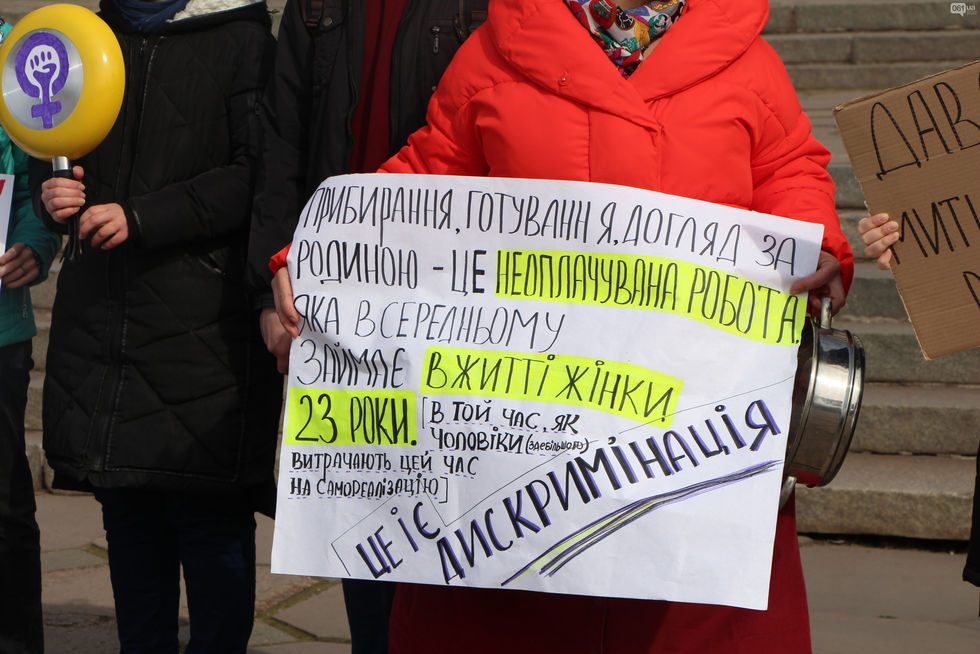 ПРИБИРАННЯ, ГОТУВАННЯ, ДОГЛЯД ЗА
РОДИНОЮ - ЦЕ НЕОПЛАЧУВАНА РОБОТА.
ЯКА В СЕРЕДНЬОМУ
ЗАЙМАЄ В ЖИТТІ ЖІНКИ
23 РОКИ. [В ТОЙ ЧАС, ЯК
ЧОЛОВІКИ (здебільшого)
ВИТРАЧАЮТЬ ЦЕЙ ЧАС
НА САМОРЕАЛІЗАЦІЮ]
ЦЕ І Є
ДИСКРИМІНАЦІЯ
061.ua